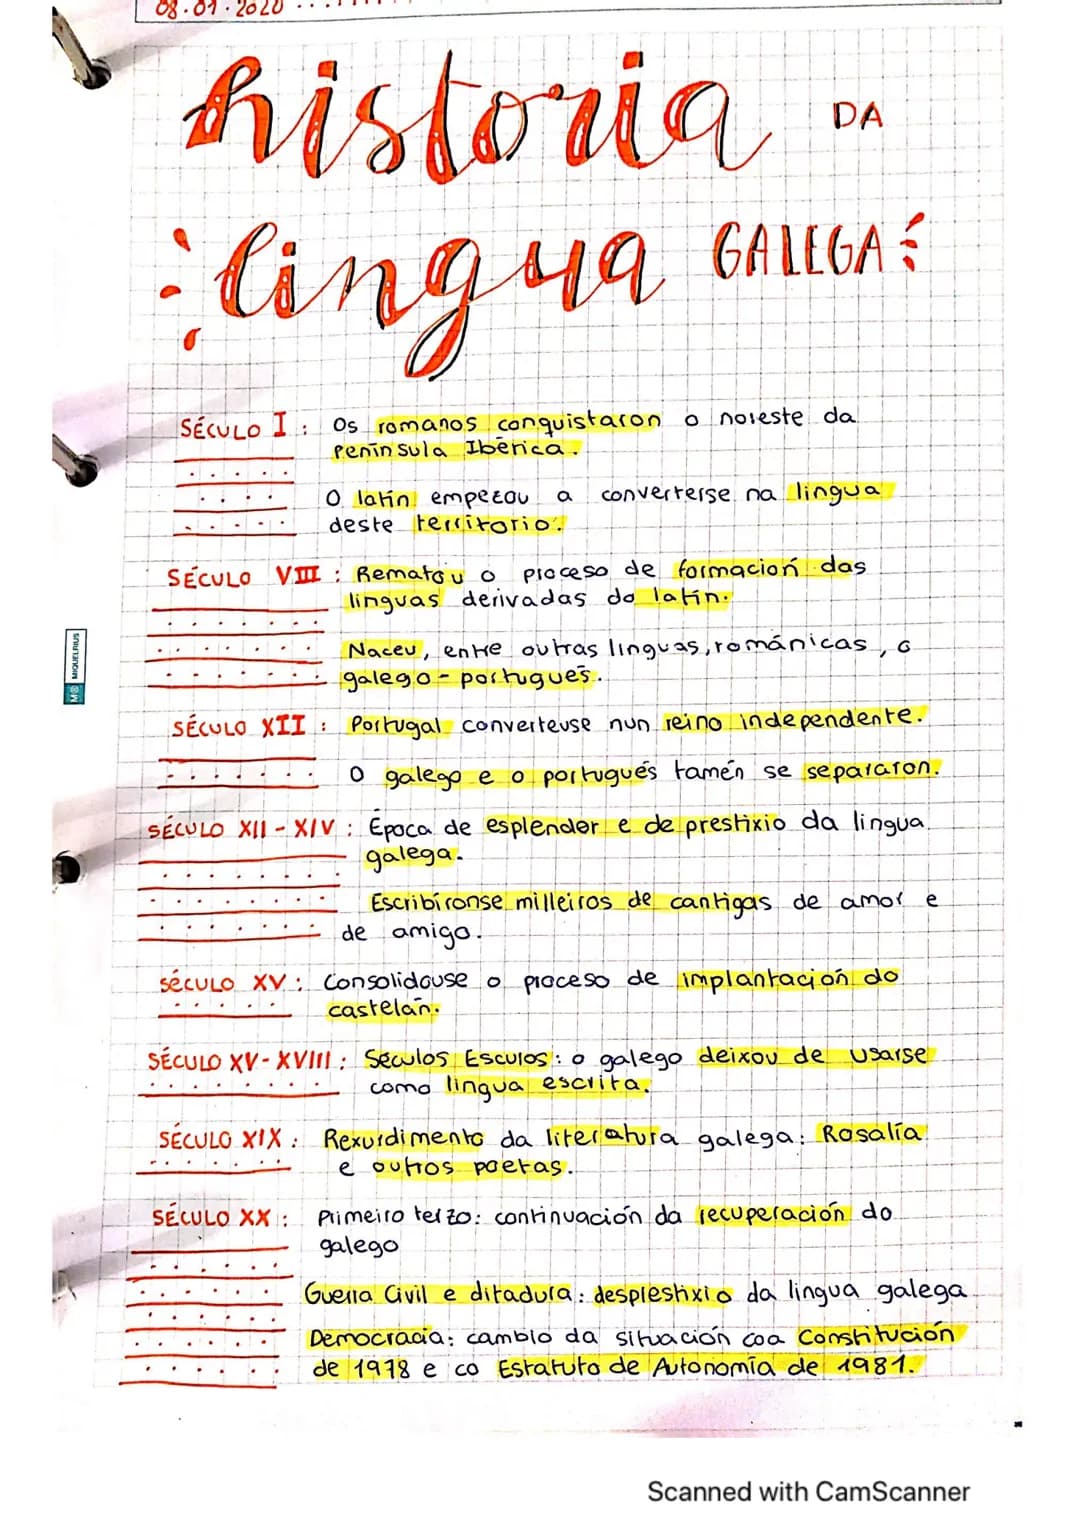 08.01.2020
historia DA
lingua GALEGA
SÉCULO I : Os romanos conquistaron o noreste da
Península Ibérica.
O latín empezou a converterse na lingua
deste territorio.
SÉCULO VIII : Rematou o proceso de formación das
linguas derivadas do latín.
Naceu, entre outras linguas, románicas, o
galego-portugués.
SÉCULO XII : Portugal converteuse nun reino independente.
O galego e o portugués tamén se separaron.
SÉCULO XII - XIV : Época de esplendor e de prestixio da lingua
galega.
Escribíronse milleiros de cantigas de amor e
de amigo.
SÉCULO XV : Consolidouse o proceso de implantación do
castelán.
SÉCULO XV - XVIII : Séculos Escuros : o galego deixou de usarse
como lingua escrita.
SÉCULO XIX : Rexurdimento da literatura galega: Rosalía
e outros poetas.
SÉCULO XX : Primeiro terzo: continuación da recuperación do
galego
Guerra Civil e ditadura: desprestixio da lingua galega
Democracia: cambio da situación coa Constitución
de 1978 e co Estatuto de Autonomía de 1981.
MIQUELRIUS
Scanned with CamScanner